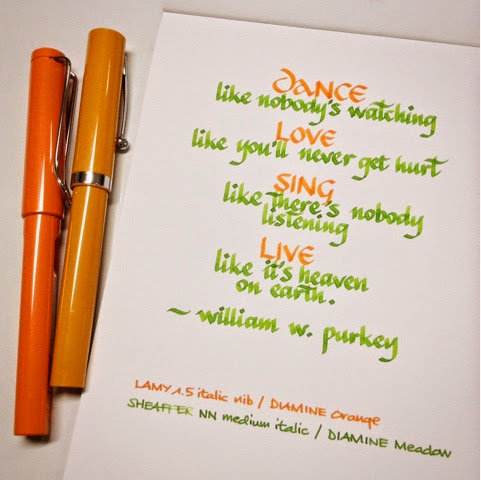 DANCE
like nobody's watching
LOVE
like you'll never get hurt
SING
like there's nobody
listening
LIVE
like it's heaven
on earth.
~ william w. purkey
LAMY 1.5 italic nib / DIAMINE Orange
SHEAFFER NN medium italic / DIAMINE Meadow